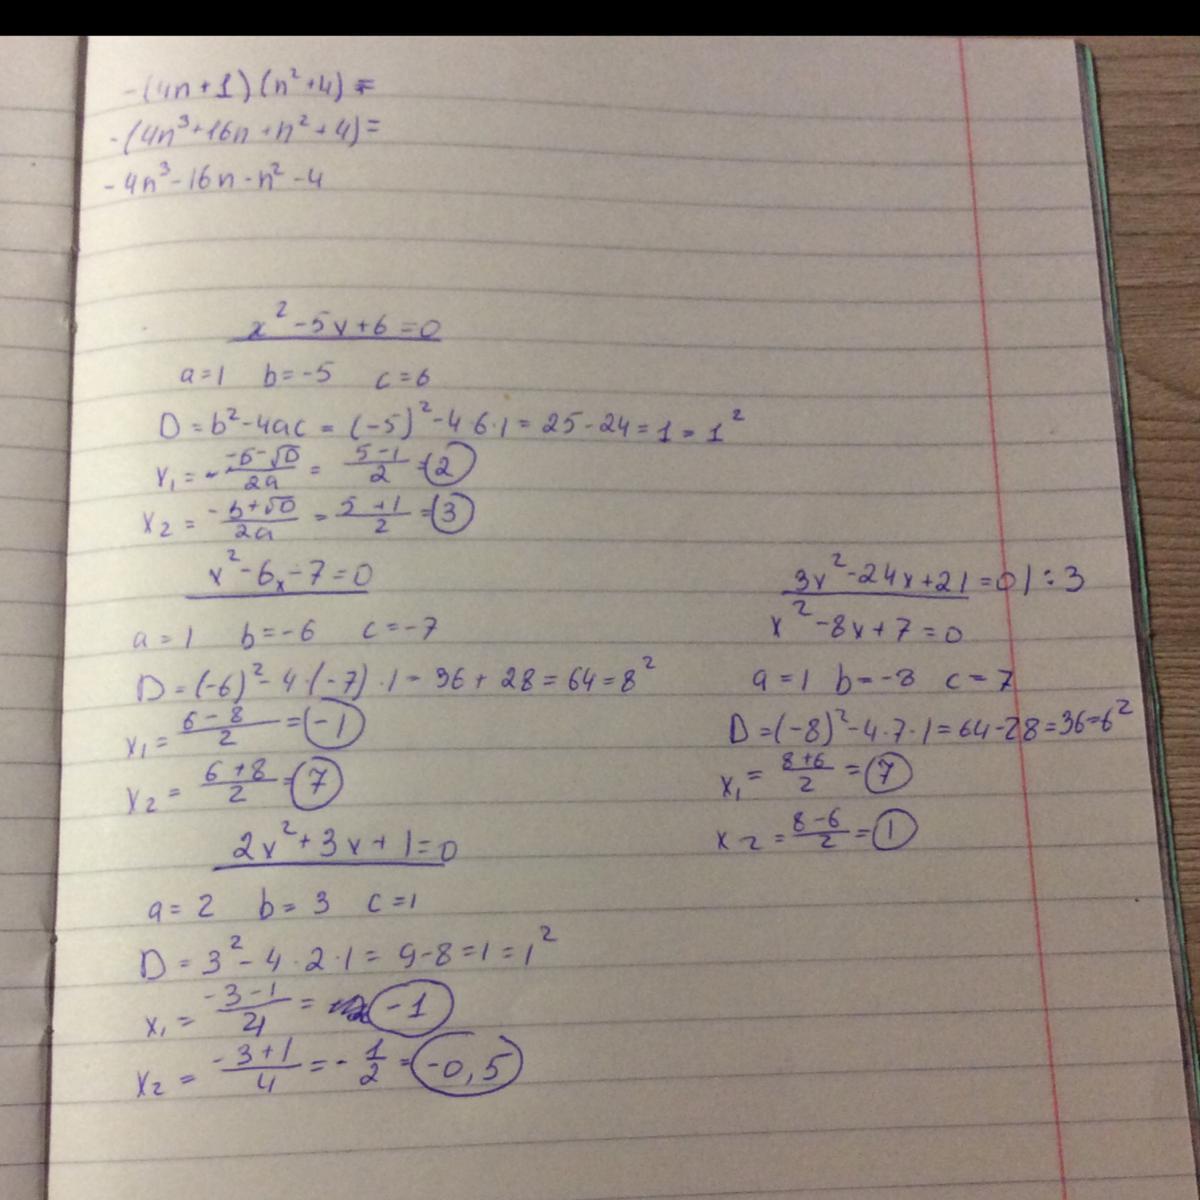 -(4n+1)(n²+4)=
-(4n³+16n+n²+4)=
-4n³-16n-n²-4
x²-5x+6=0
a=1 b=-5 c=6
D=b²-4ac=(-5)²-4·6·1=25-24=1=1²
x₁=-\frac{-b-√D}{2a}=\frac{5-1}{2}=2
x₂=\frac{-b+√D}{2a}=\frac{5+1}{2}=3
x²-6x-7=0
a=1 b=-6 c=-7
D=(-6)²-4·(-7)·1=36+28=64=8²
x₁=\frac{6-8}{2}=-1
x₂=\frac{6+8}{2}=7
2x²+3x+1=0
a=2 b=3 c=1
D=3²-4·2·1=9-8=1=1²
x₁=\frac{-3-1}{4}=-1
x₂=\frac{-3+1}{4}=-\frac{1}{2}=-0,5
3x²-24x+21=0|:3
x²-8x+7=0
a=1 b=-8 c=7
D=(-8)²-4·7·1=64-28=36=6²
x₁=\frac{8+6}{2}=7
x₂=\frac{8-6}{2}=1